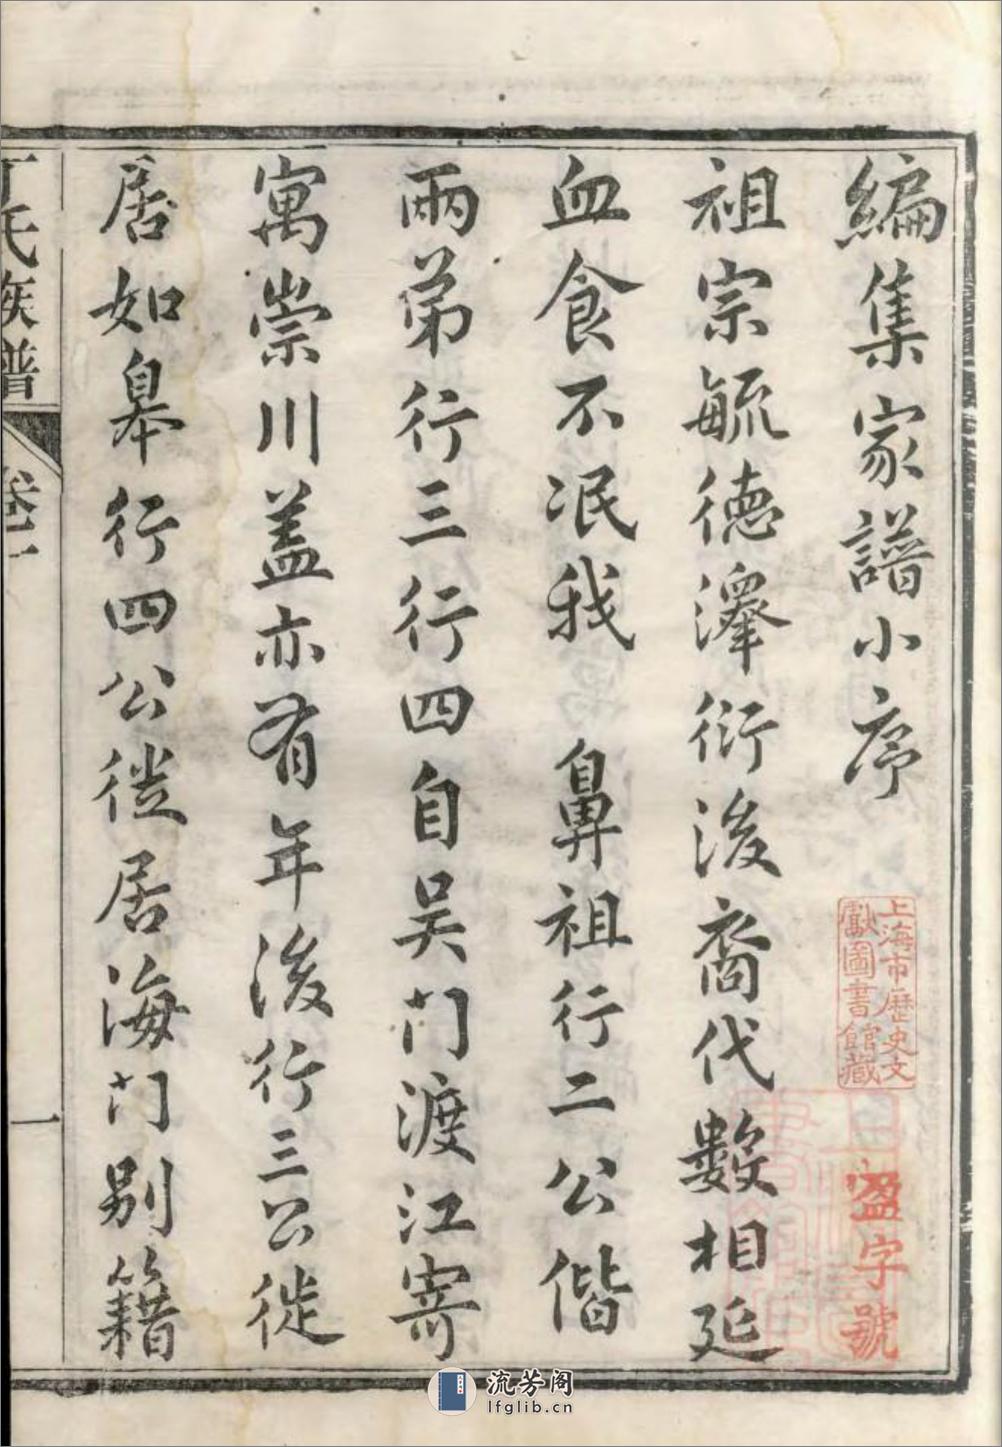 編集家譜小序
祖宗毓德澤衍後裔代數相延
血食不泯我 鼻祖行二公偕
兩弟行三行四自吴门渡江寄
寓崇川盖亦有年後行三公徙
居如皋行四公徙居海门别籍
丁氏族譜
卷一
一
上海市歷史文
獻圖書館藏
字號
流芳阁
lfglib.cn